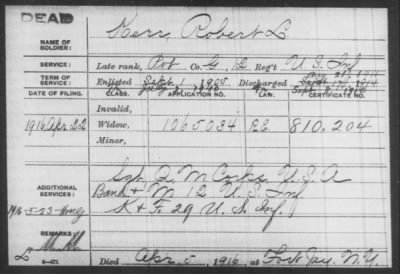 DEAD
NAME OF SOLDIER: Kerr, Robert L.
SERVICE: Late rank, Pvt Co. G, 12 Reg't U.S. Inf
TERM OF SERVICE: Enlisted Sept. 1, 1905 Discharged
DATE OF FILING. CLASS. APPLICATION NO. LAW. CERTIFICATE NO.
Invalid,
1916 Apr 22 Widow, 1065034 810,204
Minor,
ADDITIONAL SERVICES: Sgt Q.M. Corps U.S.A
Band + M 12 U.S. Inf.
1916-5-23- K + F. 29 U.S. Inf.
REMARKS:
L
6-871 Died Apr. 5, 1916, at Fort Jay, N.Y.